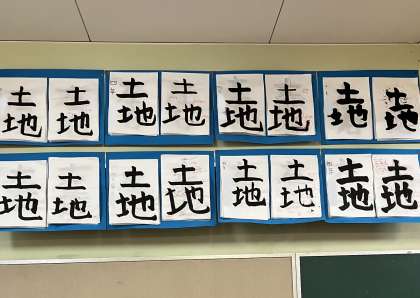 土地 土地 四年 土地 土地 土地 土地 土地 土地
土地 土地 土地 土地 土地 土地 土地 土地